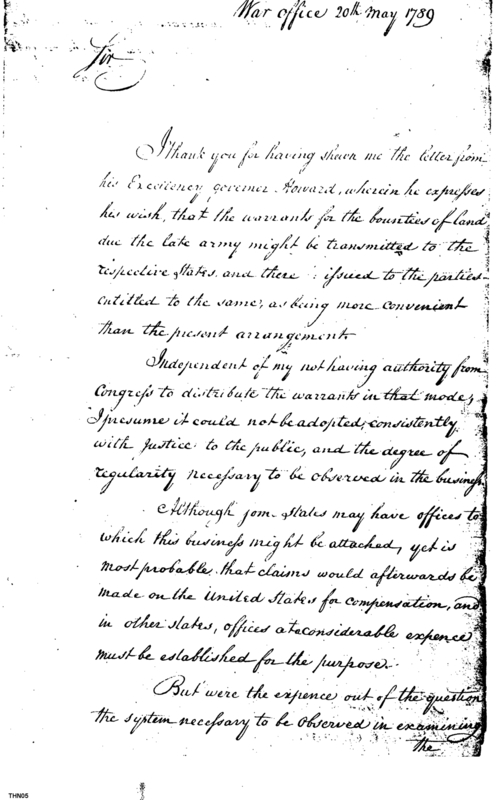 War office 20th May 1789
Sir
I thank you for having shewn me the letter from
his Excellency governor Howard, wherein he expresses
his wish, that the warrants for the bounties of land
due the late army might be transmitted to the
respective States, and there issued to the parties
entitled to the same, as being more convenient
than the present arrangement
Independent of my not having authority from
Congress to distribute the warrants in that mode,
I presume it could not be adopted, consistently
with Justice to the public, and the degree of
regularity necessary to be observed in the business
Although some States may have offices to
which this business might be attached, yet is
most probable that claims would afterwards be
made on the United States for compensation, and
in other states, offices at considerable expence
must be established for the purpose.
But were the expence out of the question
the system necessary to be observed in examining
the
THN05